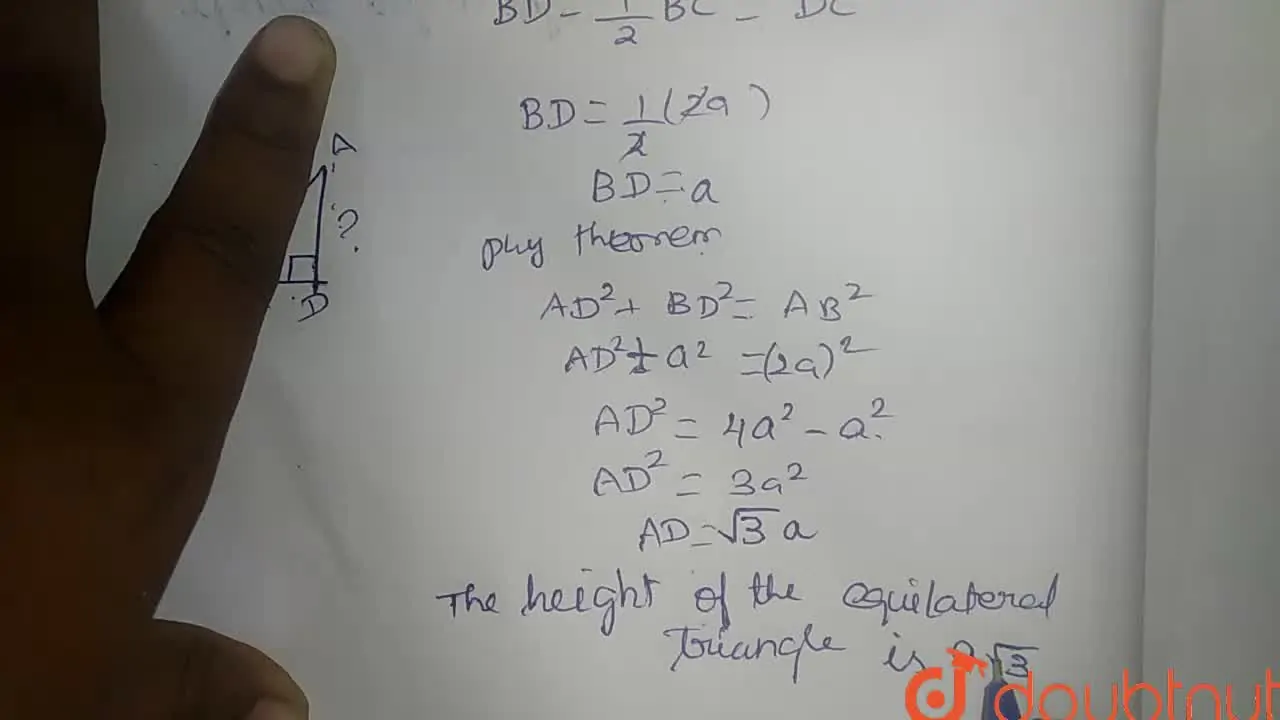 BD = 1/2 BC = DC
BD = 1/2 (2a)
BD = a
A
?
D
phy theorem
AD² + BD² = AB²
AD² + a² = (2a)²
AD² = 4a² - a²
AD² = 3a²
AD = √3 a
The height of the equilateral
triangle is a√3
doubtnut